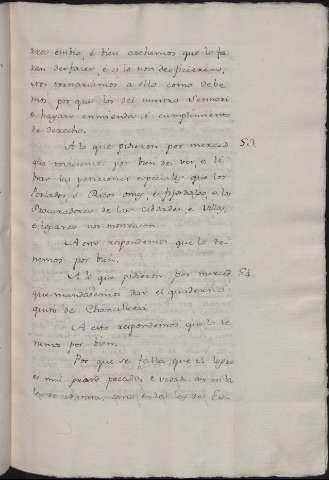 dra embio, é bien cochemos que lo fa
zen desfacer, é si lo non desficieren,
nos tornariamos a ello como debe
mos, por que los del nuestro Sennorio
hayan enmienda, é cumplimiento
de derecho.
A lo que pidieron por merced 53.
que toviesemos por bien de ver, é de
brar las peticiones especiales que los
Perlados, é Ricos omes, é fijosdalgo, é los
Procuradores de las cibdades, e Villas,
é logares nos mostraron.
A esto respondemos que lo te
nemos por bien.
A lo que pidieron por merced 54
que mandasemos dar el quaderno
quito de Chancilleria
A esto respondemos que lo te
nemos por bien.
Por que se falla, que el logro
es mui grand pecado, é vedado asi en la
ley de natura, como en las leys de Es